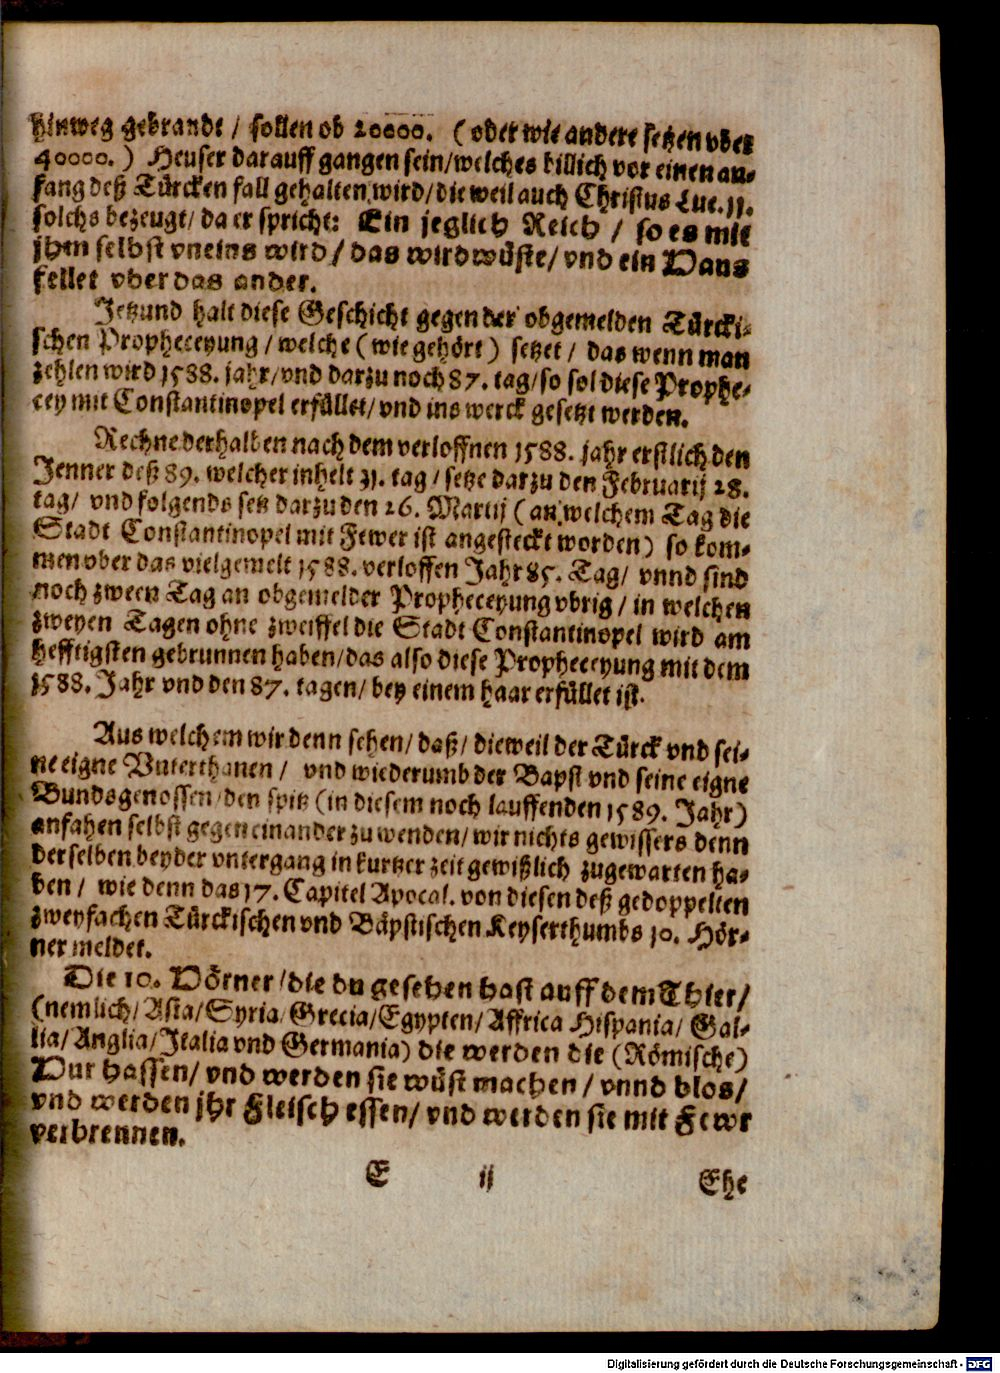 hinweg gebrandt / sollen ob 20000. (oder wie andere setzen vber
40000.) Heuser darauff gangen sein/welches billich vor einen an-
fang deß Türcken fall gehalten wird/dieweil auch Christus Luc. 11.
solchs bezeugt/ da er spricht: Ein jeglich Reich / so es mit
jhm selbst vneins wird/ das wird wüste/ vnd ein Haus
fellet vber das ander.
Jetzund halt diese Geschicht gegen der obgemelden Türcki-
schen Propheceyung / welche (wie gehört) setzet / das wenn man
zehlen wird 1588. jahr/vnd darzu noch 87. tag/so sol diese Prophe-
cey mit Constantinopel erfüllet/ vnd ins werck gesetzt werden.
Rechne derhalben nach dem verloffnen 1588. jahr erstlich den
Jenner deß 89. welcher inhelt 31. tag / setze darzu den Februarij 28.
tag/ vnd folgends setz darzu den 26. Martij (an welchem Tag die
Stadt Constantinopel mit Fewer ist angesteckt worden) so kom-
men vber das vielgemelt 1588. verloffen Jahr 85. Tag/ vnnd sind
noch zween Tag an obgemelder Propheceyung vbrig / in welchen
zweyen Tagen ohne zweiffel die Stadt Constantinopel wird am
hefftigsten gebrunnen haben/das also diese Propheceyung mit dem
1588. Jahr vnd den 87. tagen/ bey einem haar erfüllet ist.
Aus welchem wir denn sehen/ daß/ dieweil der Türck vnd sei-
ne eigne Vnterthanen / vnd wiederumb der Bapst vnd seine eigne
Bundsgenossen/den spitz (in diesem noch lauffenden 1589. Jahr)
anfahen selbst gegen einander zu wenden/ wir nichts gewissers denn
derselben beyder vntergang in kurtzer zeit gewißlich zugewarten ha-
ben / wie denn das 17. Capitel Apocal. von diesen deß gedoppelten
zweyfachen Türckischen vnd Bäpstischen Keyserthumbs 10. Hör-
ner meldet.
Die 10. Hörner/die du gesehen hast auff dem Thier/
(nemlich/Asia/Syria/Grecia/Egypten/Affrica Hispania/ Gal-
lia/Anglia/Italia vnd Germania) die werden die (Römische)
Hur hassen/ vnd werden sie wüst machen / vnnd blos/
vnd werden jhr Fleisch essen/ vnd werden sie mit Fewr
verbrennen.
E ij Ehe
Digitalisierung gefördert durch die Deutsche Forschungsgemeinschaft - DFG